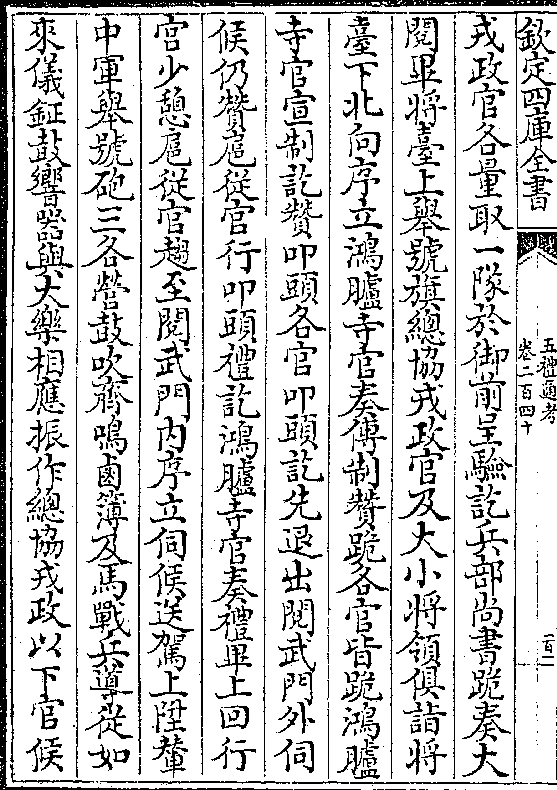 欽定四庫全書
五禮通考
卷二百四十
戎政官各量取一隊於御前呈驗訖兵部尚書跪奏大
閱畢將臺上舉號旗總協戎政官及大小將領俱詣將
臺下北向序立鴻臚寺官奏傳制贊跪各官皆跪鴻臚
寺官宣制訖贊叩頭各官叩頭訖先退出閱武門外伺
候仍贊扈從官行叩頭禮訖鴻臚寺官奏禮畢上回行
宮少憩扈從官趨至閱武門内序立伺候送駕上陞輦
中軍舉號砲三各營鼓吹齊鳴鹵簿及馬戰兵導從如
來儀鉦鼓響器與大樂相應振作總協戎政以下官候